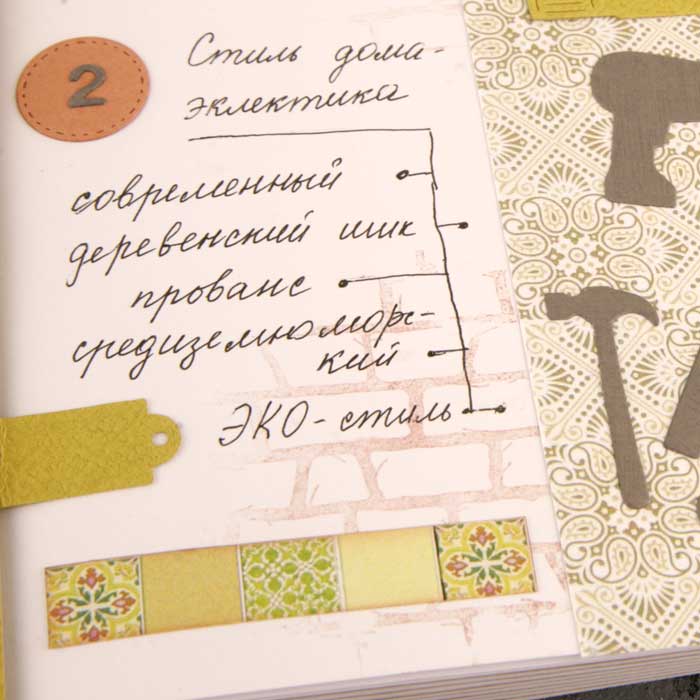 2
Стиль дома-
эклектика
современный
деревенский шик
прованс
средиземномор-
кий
ЭКО-стиль